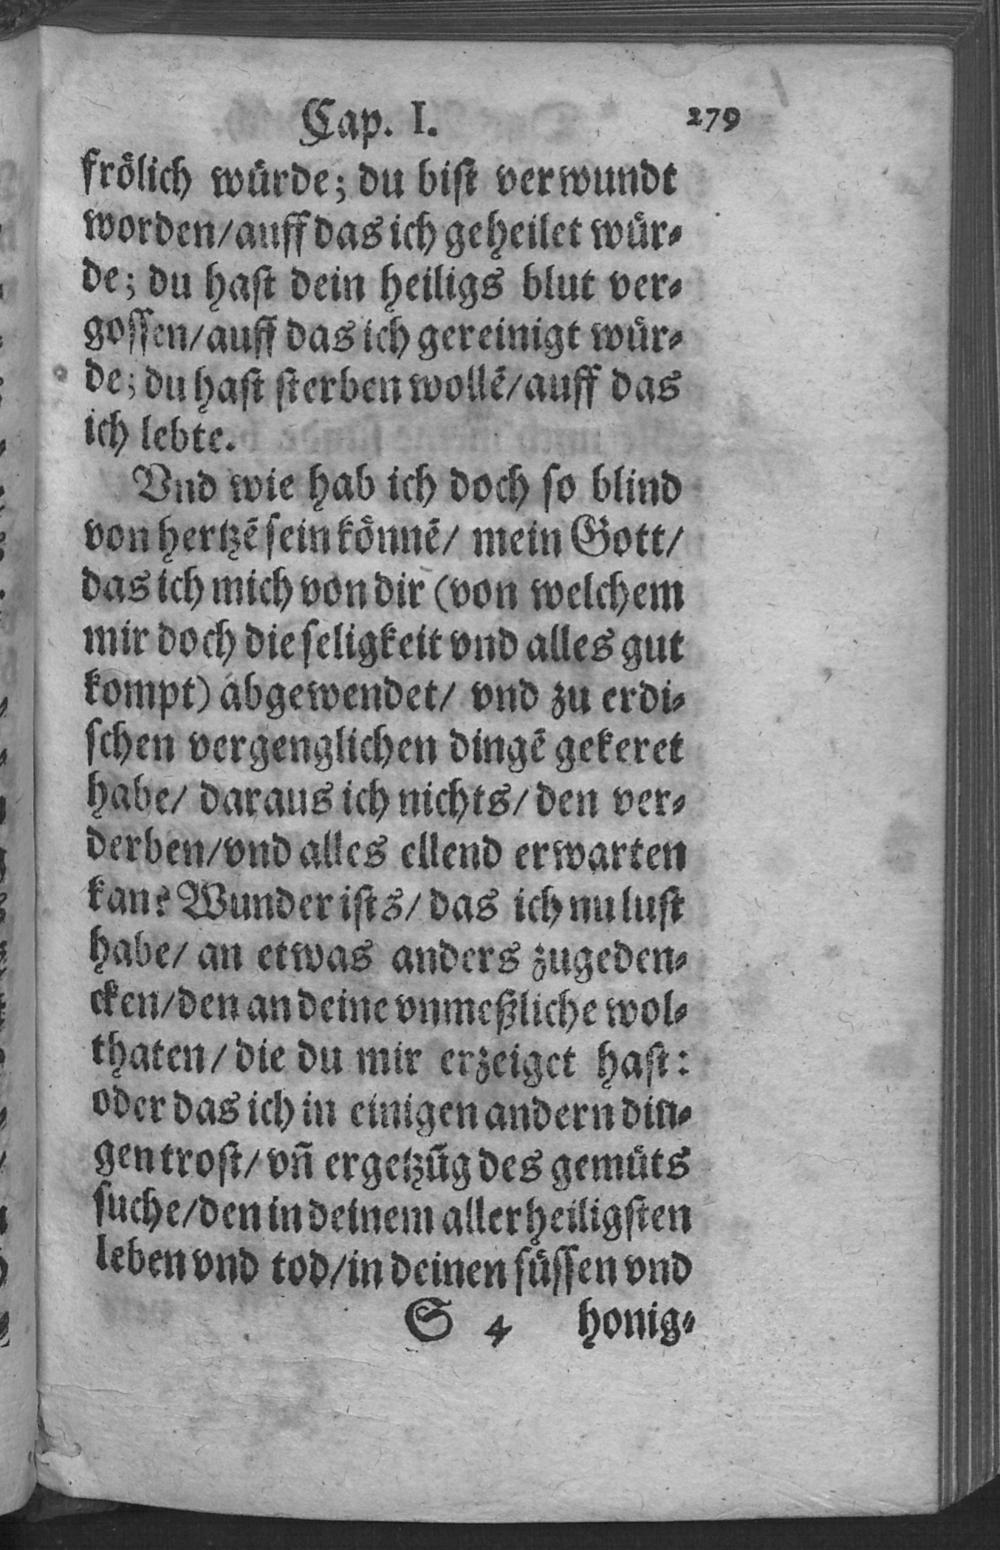 Cap. I. 279
frölich würde; du bist verwundt
worden/auff das ich geheilet wür-
de; du hast dein heiligs blut ver-
gossen/auff das ich gereinigt wür-
de; du hast sterben wollē/auff das
ich lebte.
Vnd wie hab ich doch so blind
von hertzē sein könnē/ mein Gott/
das ich mich von dir (von welchem
mir doch die seligkeit vnd alles gut
kompt) abgewendet/ vnd zu erdi-
schen vergenglichen dingē gekeret
habe/ daraus ich nichts/ den ver-
derben/vnd alles ellend erwarten
kan? Wunder ists/ das ich nu lust
habe/ an etwas anders zugeden-
cken/den an deine vnmeßliche wol-
thaten/ die du mir erzeiget hast:
oder das ich in einigen andern din-
gen trost/ vñ ergetzūg des gemüts
suche/den in deinem allerheiligsten
leben vnd tod/in deinen süssen vnd
S 4 honig-